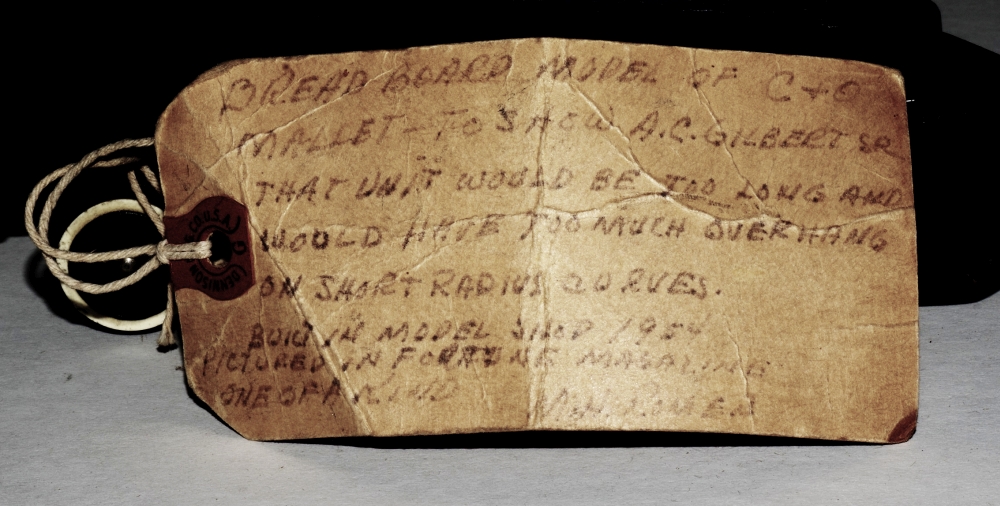 BREAD BOARD MODEL OF C+O
MALLET - TO SHOW A.C. GILBERT SR
THAT UNIT WOULD BE TOO LONG AND
WOULD HAVE TOO MUCH OVERHANG
ON SHORT RADIUS CURVES.
BUILT IN MODEL SHOP 1954
PICTURED IN FORTUNE MAGAZINE
ONE OF A KIND
DENNISON